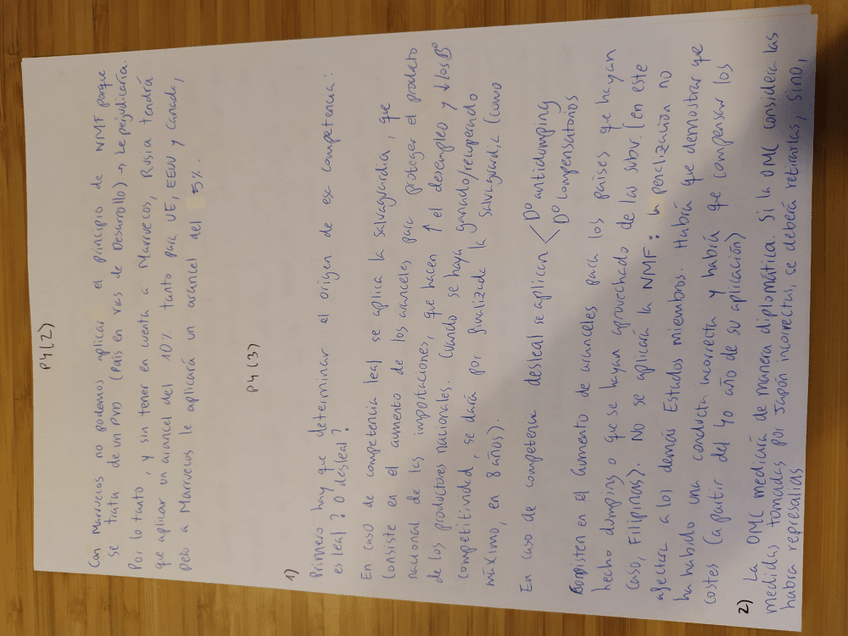 P4(2)
Con Marruecos no podemos aplicar el principio de NMF porque
se trata de un PVD (País en vías de Desarrollo) → Le perjudicaría.
Por lo tanto, y sin tener en cuenta a Marruecos, Rusia tendrá
que aplicar un arancel del 10% tanto para UE, EEUU y Canadá,
pero a Marruecos le aplicará un arancel del 5%.
P4(3)
1)
Primero hay que determinar el origen de esa competencia:
es leal? O desleal?
En caso de competencia leal se aplica la salvaguardia, que
consiste en el aumento de los aranceles para proteger el producto
nacional de las importaciones, que hacen ↑ el desempleo y ↓ los Bº
de los productores nacionales. Cuando se haya ganado/recuperado
competitividad, se dará por finalizada la salvaguardia (como
máximo, en 8 años).
En caso de competencia desleal se aplican < Dº antidumping
Dº compensatorios
Consisten en el aumento de aranceles para los países que hayan
hecho dumping o que se hayan aprovechado de las subv. (en este
caso, Filipinas). No se aplicará la NMF: la penalización no
afectará a los demás Estados miembros. Habrá que demostrar que
ha habido una conducta incorrecta y habrá que compensar los
costes (a partir del 4o año de su aplicación)
2) La OMC mediará de manera diplomática. Si la OMC considera las
medidas tomadas por Japón incorrectas, se deberá retirarlas, sino,
habrá represalias